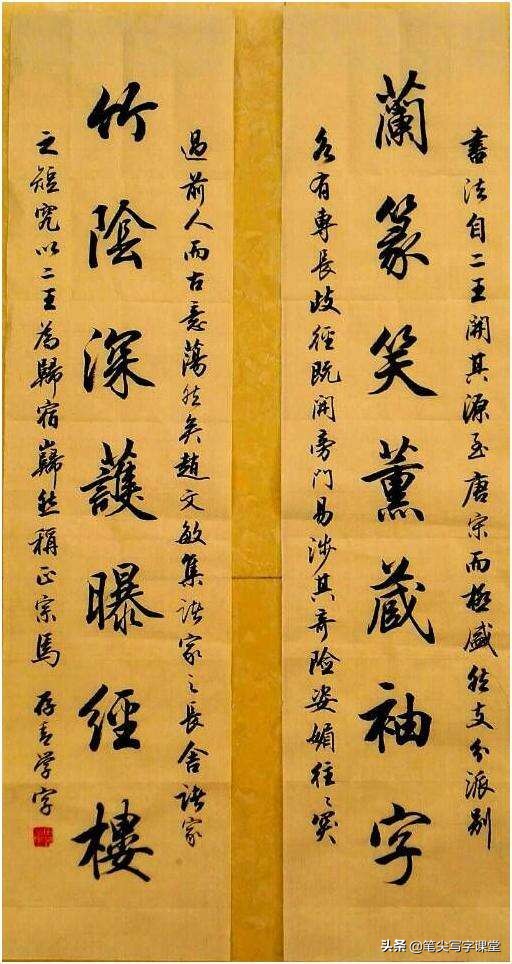 書法自二王開其源至唐宋而極盛然支分派別
蘭篆笑薰蔵袖字
各有專長歧徑既開旁門易涉其奇險姿媚往〻突
過前人而古意蕩然矣趙文敏集諸家之長舍諸家
竹陰深護曝經樓
之短究以二王為歸宿巋然稱正宗焉 學字
头条 @笔尖写字课堂